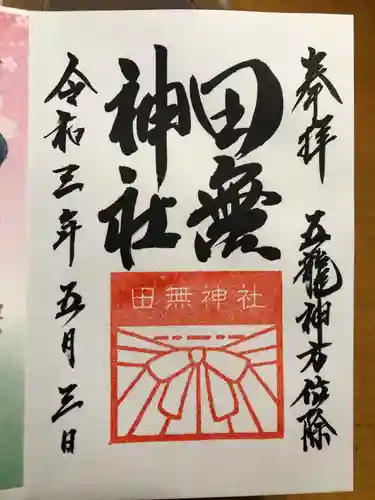 奉拝
五龍神方位除
田無
神社
田無神社
令和三年五月三日